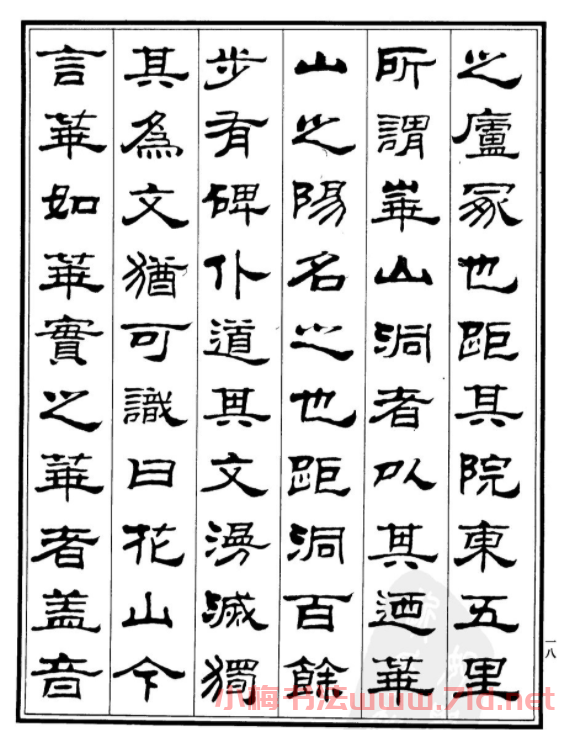 之廬冢也距其院東五里
所謂華山洞者以其迺華
山之陽名之也距洞百餘
步有碑仆道其文漫滅獨
其為文猶可識曰花山今
言華如華實之華者盖音
一八
小梅书法www.7ld.net